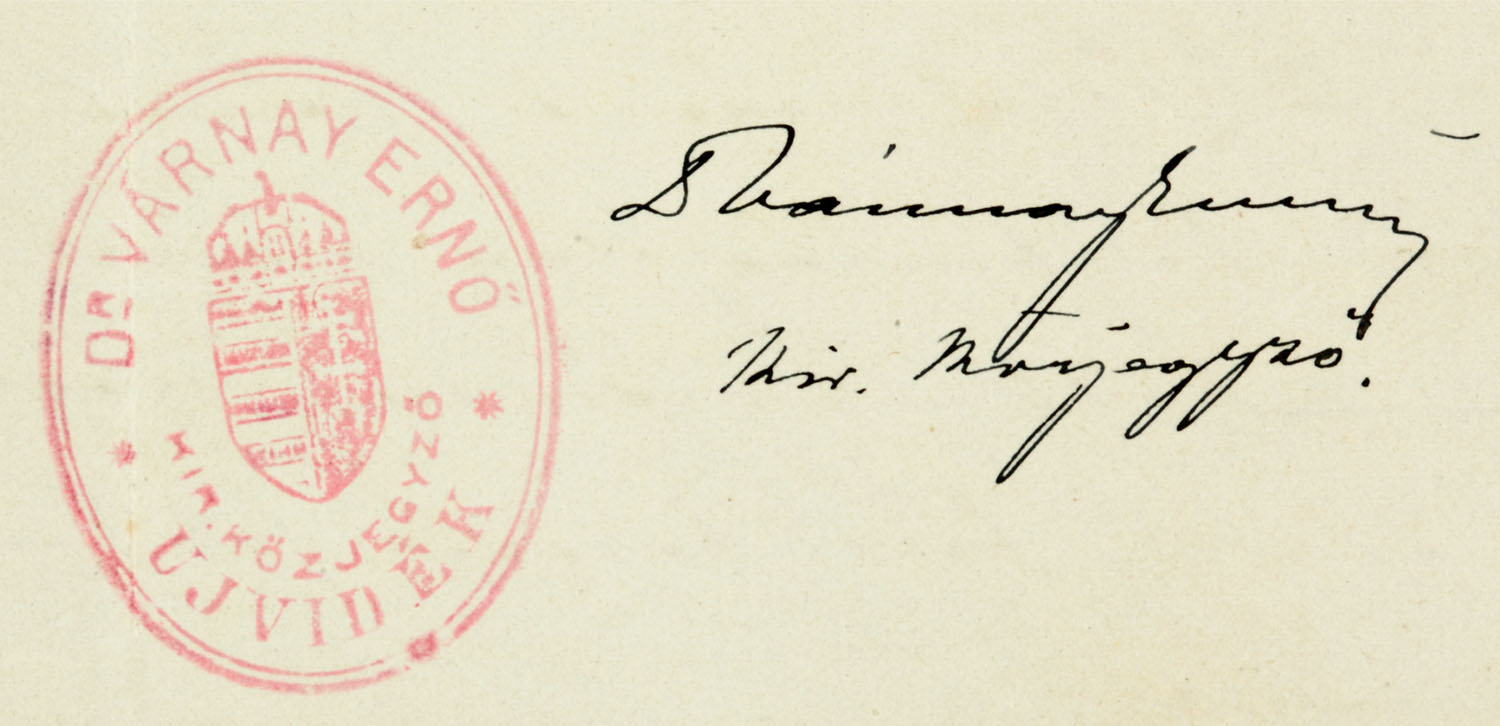 Dr VÁRNAY ERNŐ
KIR. KÖZJEGYZŐ
UJVIDÉK
Dr Várnay Ernő
kir. közjegyző.